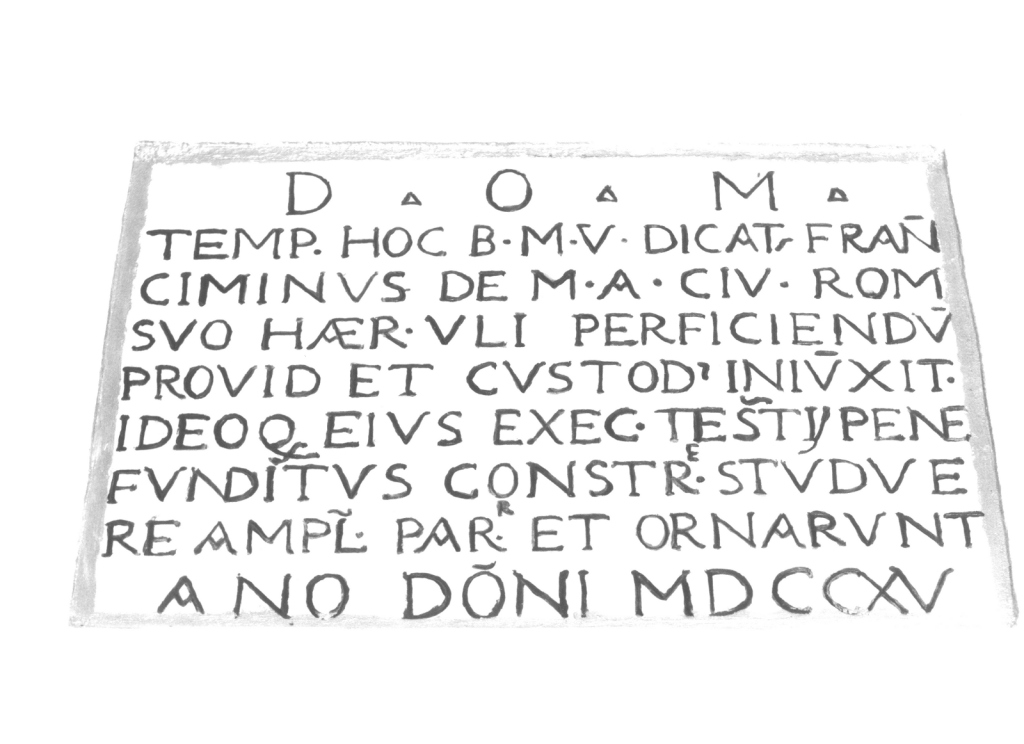 D ▵ O ▵ M ▵
TEMP. HOC B·M·V· DICAT, FRAN̄
CIMINVS DE M·A· CIV· ROM
SVO HÆR· VLI PERFICIENDV̄
PROVID ET CVSTOD INIV̄XIT·
IDEOQ EIVS EXEC· TEST̃IJ PENE
FVNDITVS CONSTRE· STVDVE
RE AMPL̃· PARR· ET ORNARVNT
ANO DŌNI MDCCXV